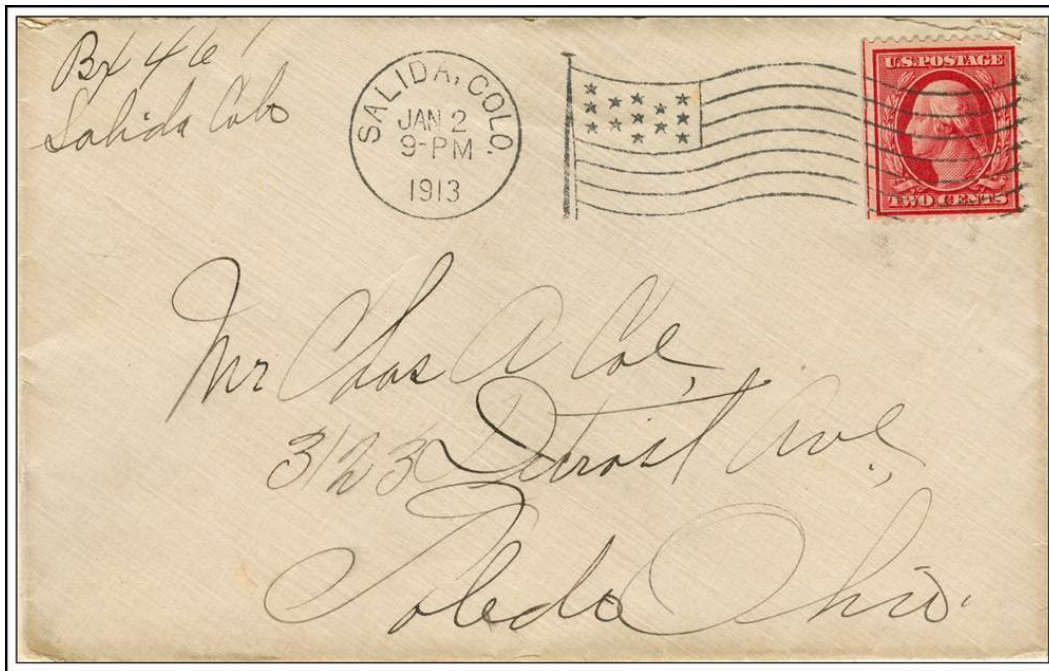 Bx 461
Salida Colo
SALIDA, COLO.
JAN 2
9-PM
1913
U.S. POSTAGE
TWO CENTS
Mr Chas A Coe,
3123 Detroit Ave.,
Toledo Ohio.